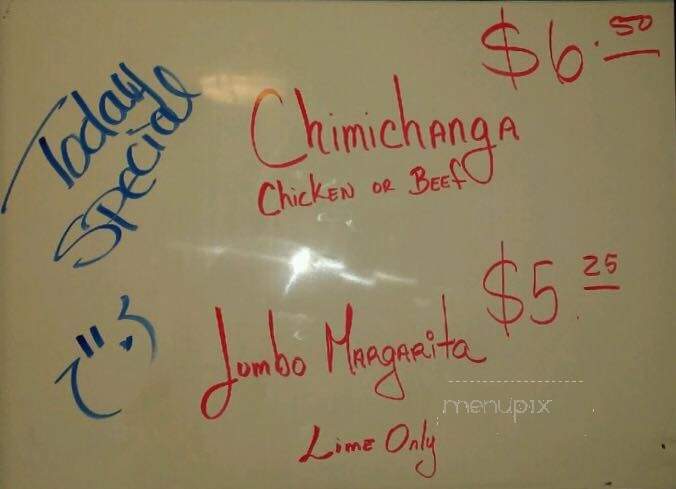 Today
Special
$6.50
Chimichanga
Chicken or Beef
$5.25
Jumbo Margarita
Lime Only
menupix